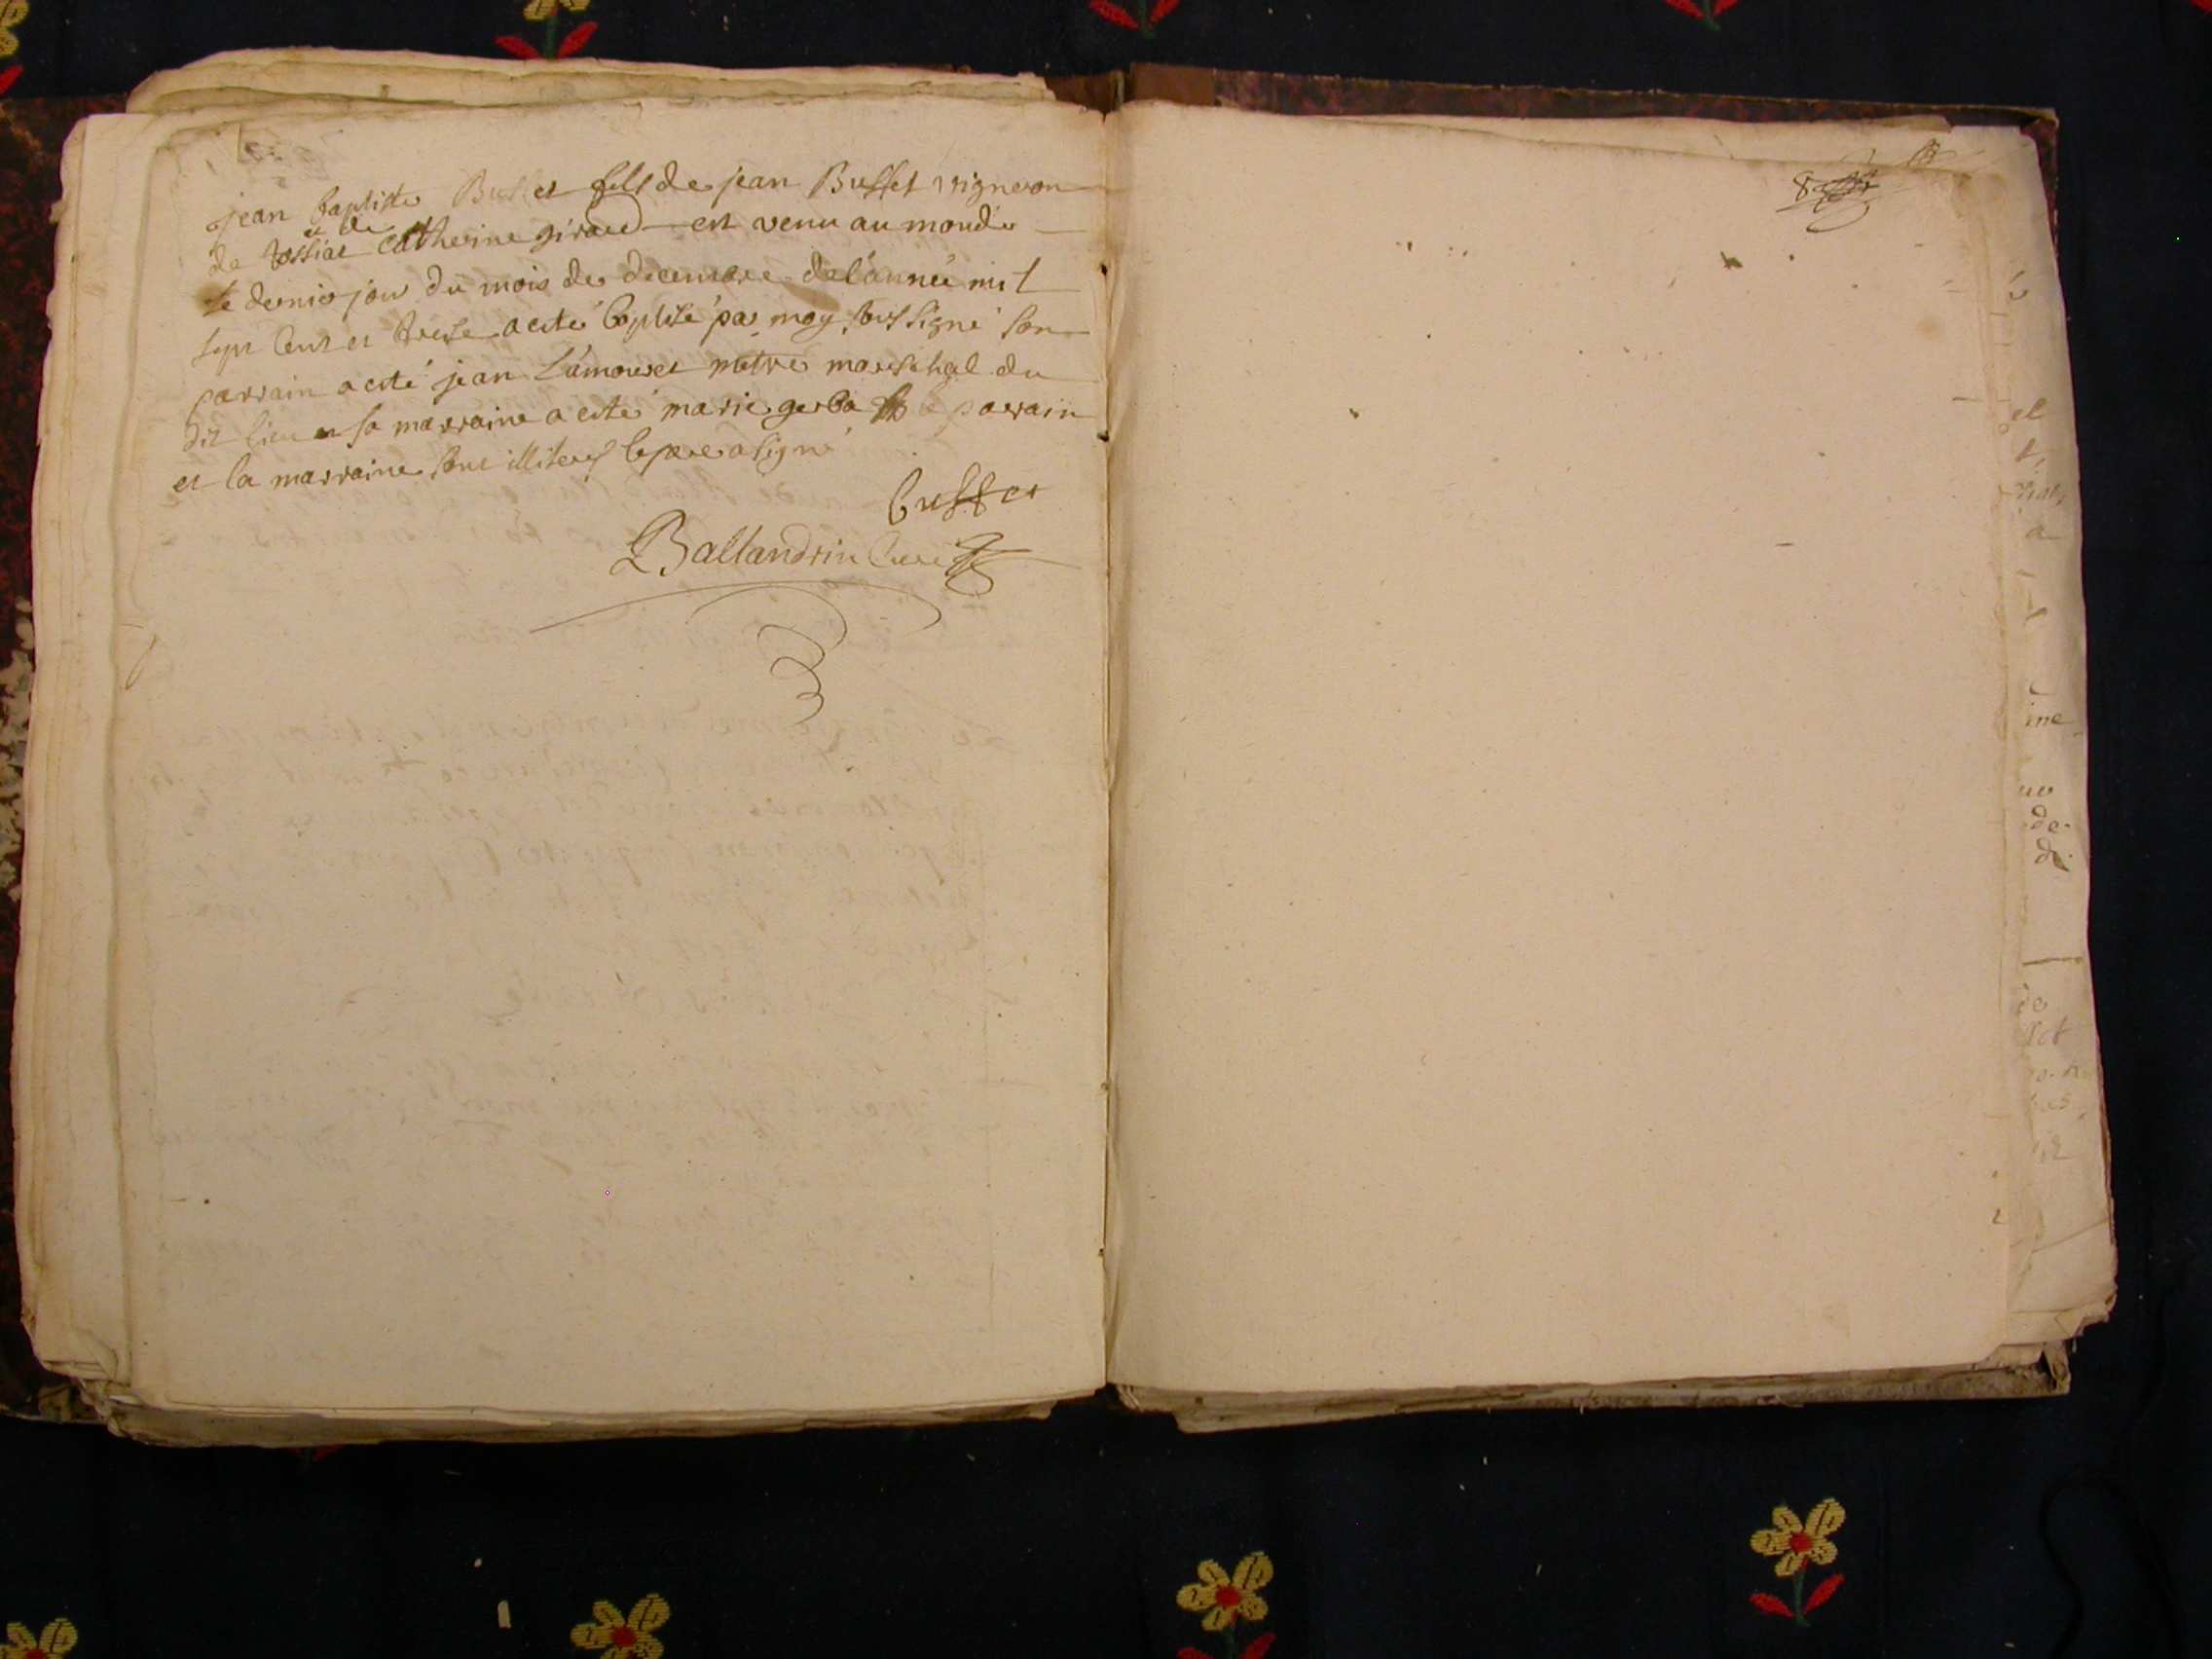 jean baptiste Buffet fils de jean Buffet vigneron
de et de Catherine girard est venu au monde
le dernier jour du mois de decembre de l'année mil
sept cent et treise a esté baptisé par moy soussigné son
parrain a esté jean Lamouret metre mareschal du
dit lieu et sa marraine a esté marie gerba le parain
et la marraine sont illiterés le pere a signé
buffet
Ballandrin Curé
8